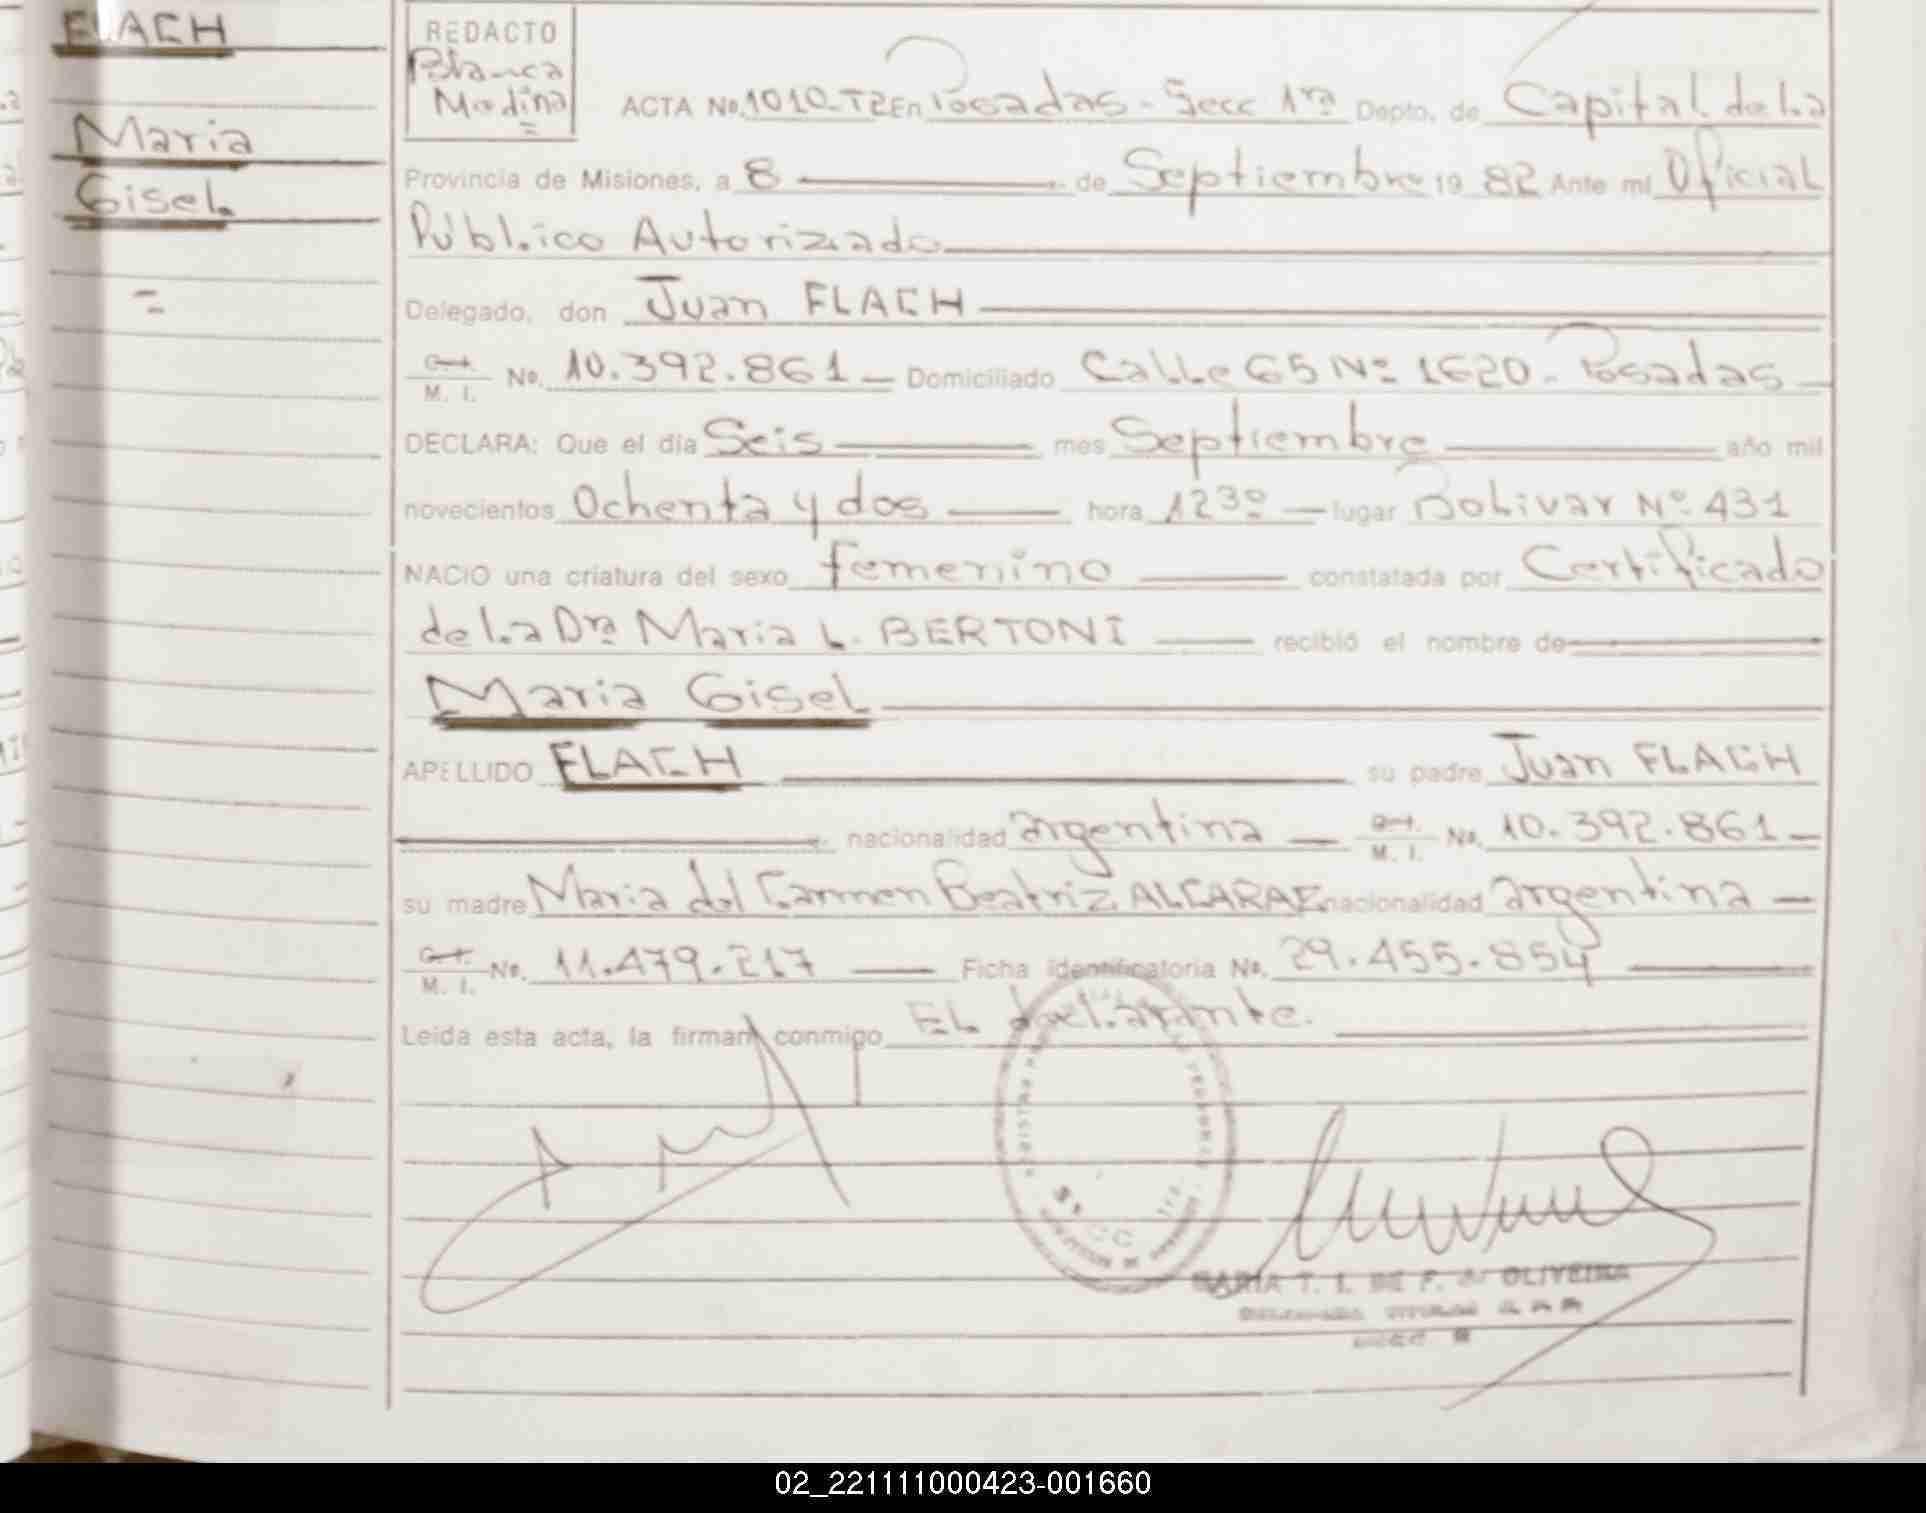 FLACH
Maria
Gisel
REDACTO
Blanca
Modina
ACTA No. 1010-T2 En Posadas - Secc 1ra Depto. de Capital de la
Provincia de Misiones, a 8 de Septiembre 19 82 Ante mi Oficial
Público Autorizado
Delegado, don Juan FLACH
C.I. M. I. No. 10.392.861 Domiciliado Calle 65 Nº 1620 - Posadas
DECLARA: Que el día Seis mes Septiembre año mil
novecientos Ochenta y dos hora 1230 lugar Bolivar Nº 431
NACIO una criatura del sexo femenino constatada por Certificado
de la Dra Maria L. BERTONI recibió el nombre de
Maria Gisel
APELLIDO FLACH su padre Juan FLACH
nacionalidad argentina C.I. M. I. No. 10.392.861
su madre Maria del Carmen Beatriz ALCARAZ nacionalidad argentina
C.I. M. I. No. 11.479.217 Ficha identificatoria No. 29.455.854
Leída esta acta, la firman conmigo El declarante.
MARIA T. I. DE F. de OLIVEIRA
02_221111000423-001660